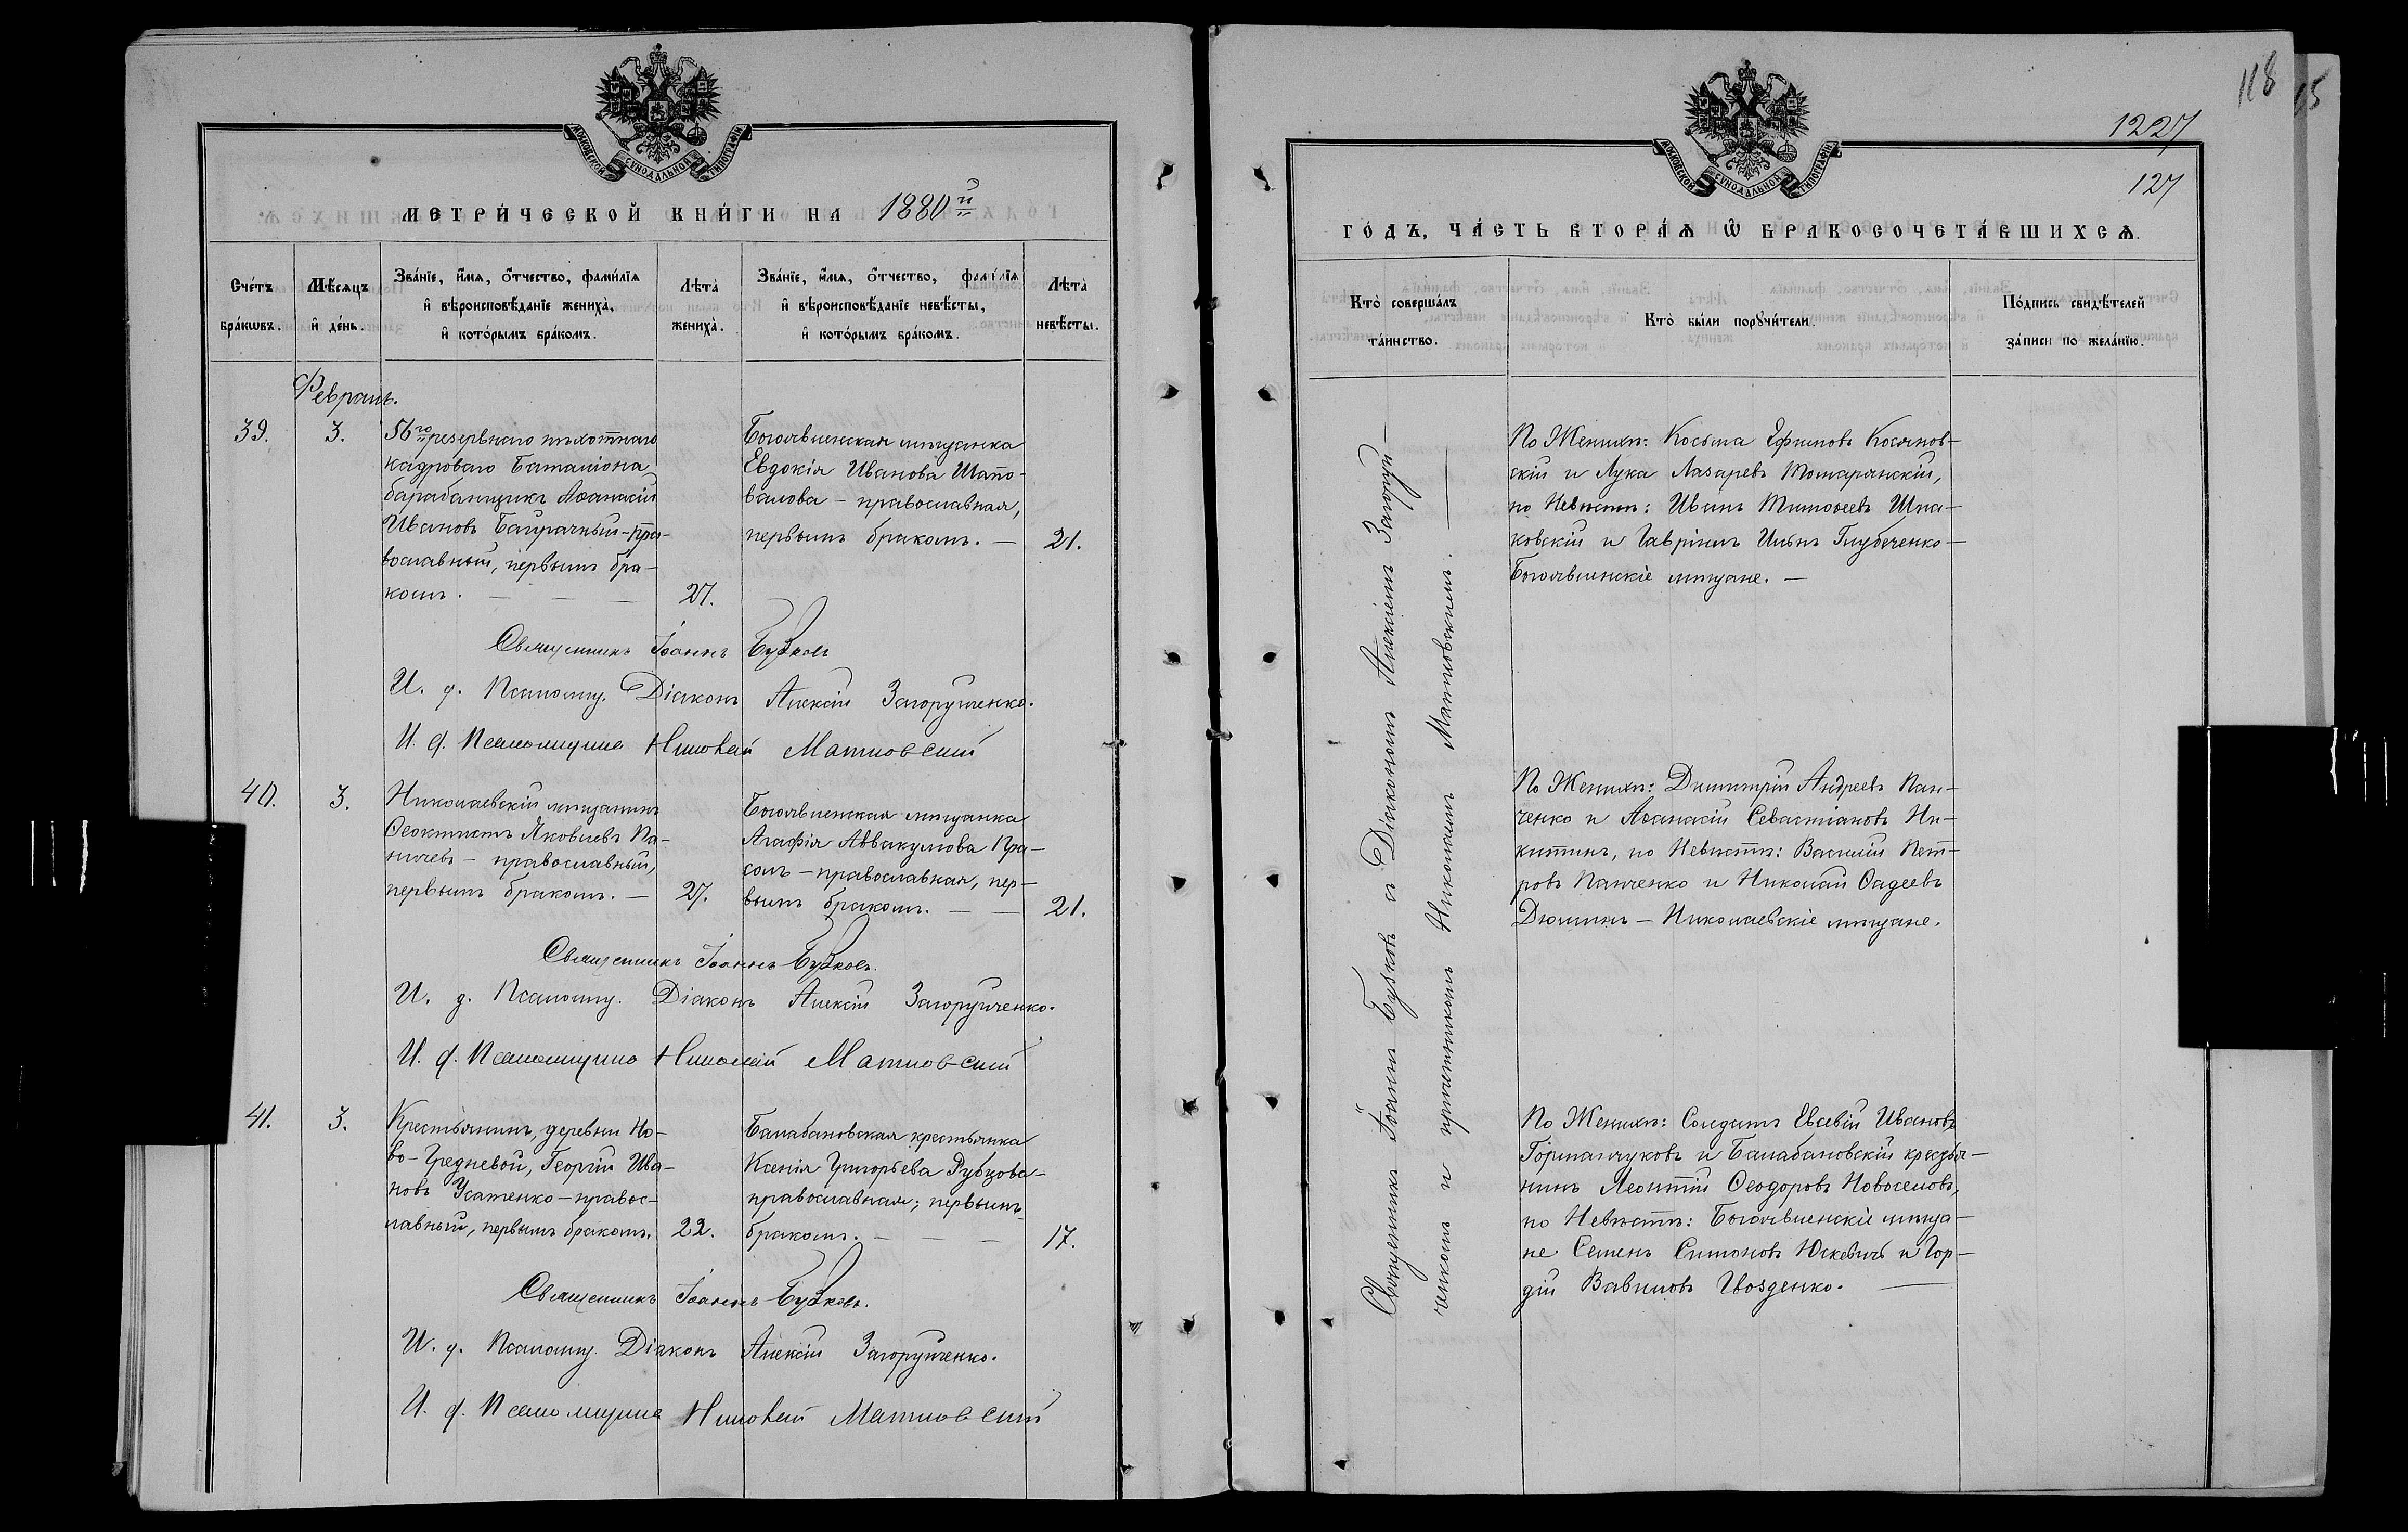 МОСКОВСКОЙ СУНОДАЛЬНОЙ ТИПОГРАФІИ
МЕТРИ́ЧЕСКОЙ КНИ́ГИ НА 1880й
Сче́тъ бра́кѡвъ.
Мѣ́сяцъ и҆ де́нь.
Зва́нїе, и҆́мя, ѻ҆́тчество, фами́лїя
и҆ вѣроисповѣ́данїе женихà,
и҆ кото́рымъ бра́комъ.
Лѣтà женихà.
Зва́нїе, и҆́мя, ѻ҆́тчество, фами́лїя
и҆ вѣроисповѣ́данїе невѣ́сты,
и҆ кото́рымъ бра́комъ.
Лѣтà невѣ́сты.
Февраль.
39.
3.
56го резервнаго пѣхотнаго
кадроваго баталіона
барабанщикъ Аѳанасій
Ивановъ Байрачный - пра-
вославный, первымъ бра-
комъ. — — —
27.
Богоявленская мѣщанка
Евдокія Иванова Шапо-
валова - православная,
первымъ бракомъ. —
21.
Священникъ Іоаннъ Бубковъ
И. д. Псаломщ. Діаконъ Алексій Загоруйченко.
И. д. Псаломщика Николай Матковскій
40.
3.
Николаевскій мѣщанинъ
Ѳеоктистъ Яковлевъ Па-
ничевъ - православный,
первымъ бракомъ. —
27.
Богоявленская мѣщанка
Агафія Аввакумова Пра-
солъ - православная, пер-
вымъ бракомъ. — —
21.
Священникъ Іоаннъ Бубковъ.
И. д. Псаломщ. Діаконъ Алексій Загоруйченко.
И. д. Псаломщика Николай Матковскій
41.
3.
Крестьянинъ, деревни Но-
во-Гредневой, Георгій Ива-
новъ Усатенко - правос-
лавный, первымъ бракомъ.
22.
Балабановская крестьянка
Ксенія Григорьева Рубцова -
православная, первымъ
бракомъ. — — —
17.
Священникъ Іоаннъ Бубковъ.
И. д. Псаломщ. Діаконъ Алексій Загоруйченко.
И. д. Псаломщика Николай Матковскій
118
1227
127
МОСКОВСКОЙ СУНОДАЛЬНОЙ ТИПОГРАФІИ
ГО́ДЪ, ЧА́СТЬ ВТОРА́Я Ѡ҆ БРАКОСОЧЕТА́ВШИХСЯ.
Кто̀ соверша́лъ
та́инство.
Кто̀ бы́ли порꙋчи́тели.
По́дпись свидѣ́телей
за́писи по жела́нїю.
Священникъ Іоаннъ Бубковъ съ Діакономъ Алексіемъ Загоруй-
ченкомъ и причетникомъ Николаемъ Матковскимъ.
По Женихѣ: Косьма Ефимовъ Косянов-
скій и Лука Лазаревъ Томарянскій,
по Невѣстѣ: Иванъ Тимоѳеевъ Шпа-
ковскій и Гавріилъ Ильинъ Глубоченко -
Богоявленскіе мѣщане. —
По Женихѣ: Димитрій Андреевъ Пан-
ченко и Аѳанасій Севастіановъ Ни-
китинъ, по Невѣстѣ: Василій Пет-
ровъ Панченко и Николай Ѳадеевъ
Дюминъ - Николаевскіе мѣщане.
По Женихѣ: Солдатъ Евсевій Ивановъ
Горманчуковъ и Балабановскій крестья-
нинъ Леонтій Ѳеодоровъ Новоселовъ,
по Невѣстѣ: Богоявленскіе мѣща-
не Семенъ Симоновъ Юкевичъ и Гор-
дій Вавиловъ Гвозденко. —